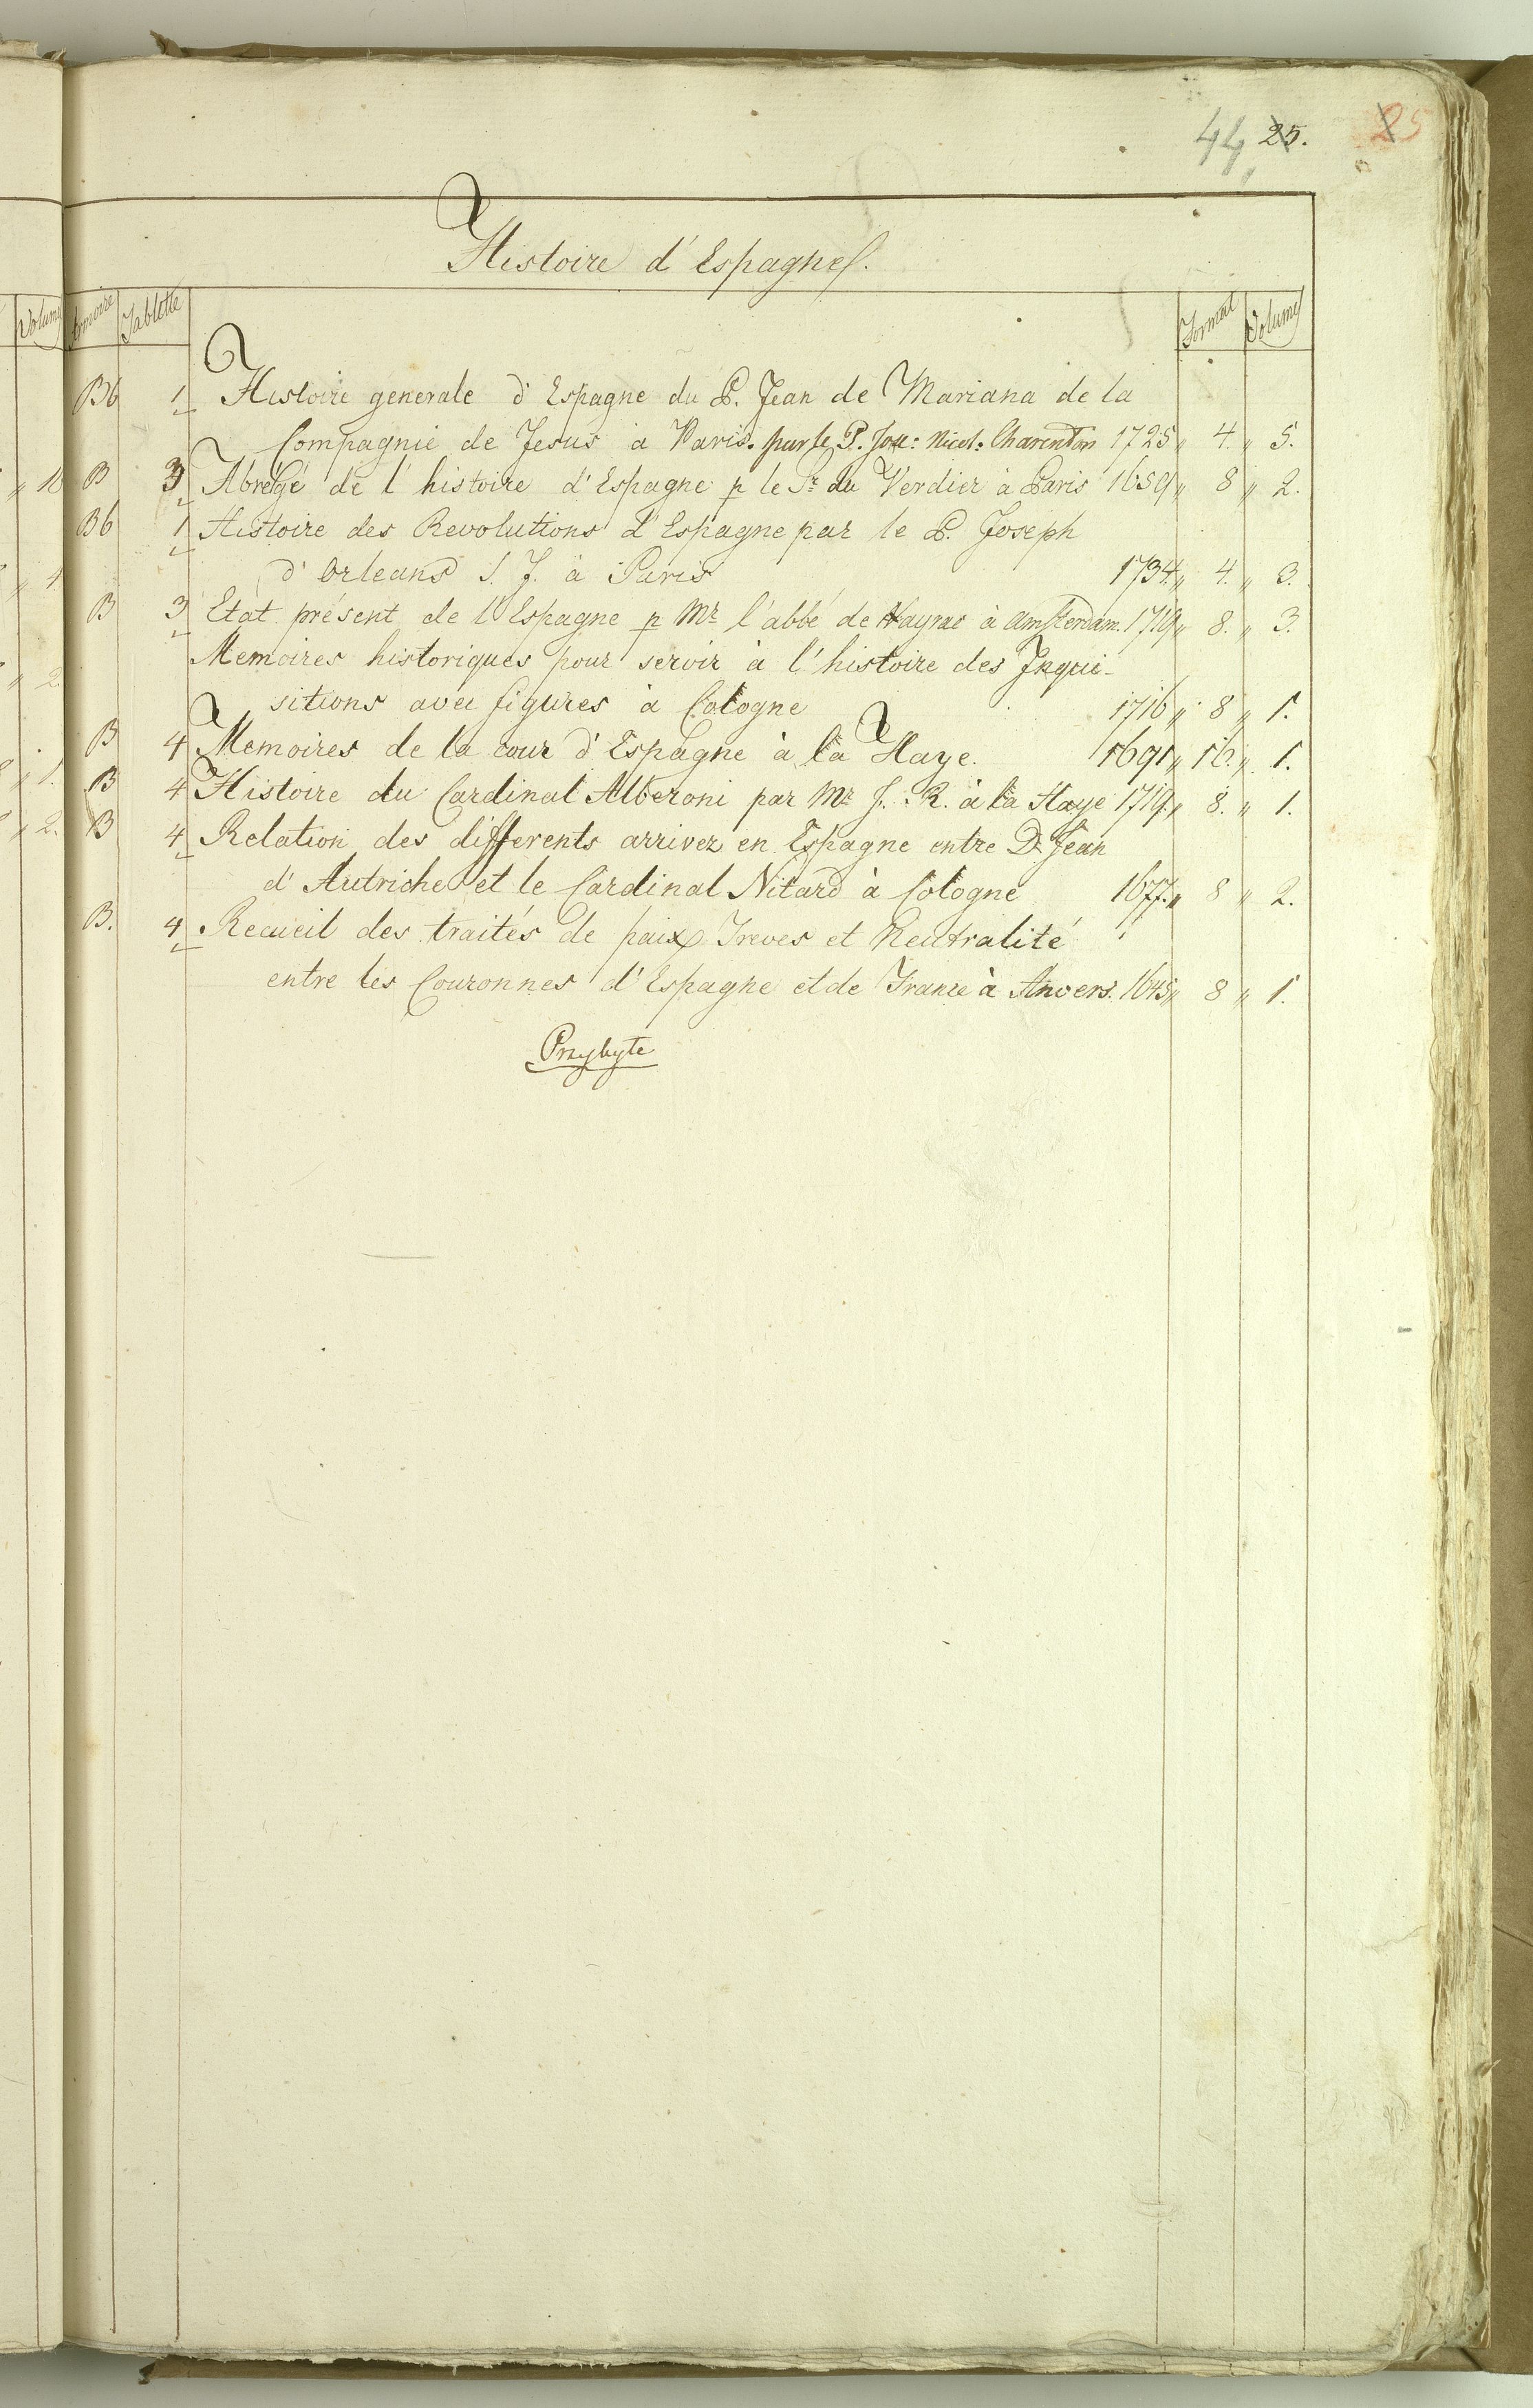 44 25. 25
Histoire d'Espagne.
Volumes Armoire Tablette Format Volumes
Bb 1 Histoire generale d'Espagne du P. Jean de Mariana de la
Compagnie de Jesus à Paris. par le P. Jos: Nicol: Charenton 1725 „ 4. „ 5.
„ 10 B 3 Abrégé de l'histoire d'Espagne p le Sr. du Verdier à Paris 1659 „ 8 „ 2.
Bb 1 Histoire des Revolutions d'Espagne par le P. Joseph
„ 4 d'Orleans S. J. à Paris 1734. „ 4. „ 3.
B 3 Etat présent de l'Espagne p Mr. l'abbé de Vayrac à Amsterdam. 1719 „ 8. „ 3.
Memoires historiques pour servir à l'histoire des Inqui-
„ 2 sitions avec figures à Cologne 1716 „ 8 „ 1.
B 4 Memoires de la cour d'Espagne à la Haye. 1691 „ 16. „ 1.
„ 1. B 4 Histoire du Cardinal Alberoni par Mr. J. R. à la Haye 1719. „ 8. „ 1.
„ 2. B 4 Relation des differents arrivez en Espagne entre D. Jean
d'Autriche et le Cardinal Nitard à Cologne 1677. „ 8 „ 2.
B. 4 Recueil des traités de paix Treves et Neutralité
entre les Couronnes d'Espagne et de France à Anvers. 1645 „ 8 „ 1.
Przybyte